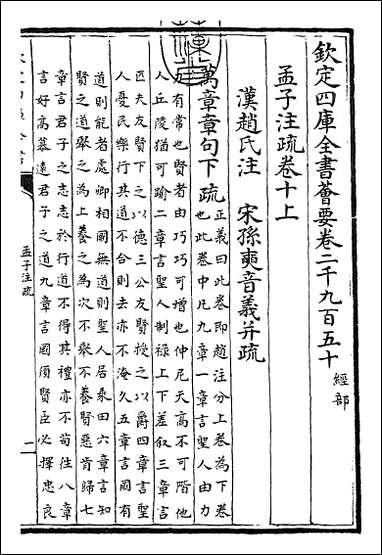 欽定四庫全書薈要卷二千九百五十 經部
孟子注疏卷十上
漢趙氏注 宋孫奭音義并疏
萬章章句下 疏 正義曰此卷即趙注分上卷為下卷
也此卷中凡九章一章言聖人由力
力有常也賢者由巧巧可增也仲尼天高不可階他
人丘陵猶可踰二章言聖人制祿上下差叙三章言
匹夫友賢下之以德三公友賢授之以爵四章言聖
人憂民樂行其道不合則去亦不淹久五章言國有
道則能者處卿相國無道則聖人居乘田六章言知
賢之道舉之為上養之為次不舉不養賢惡肯歸七
章言君子之志志於行道不得其禮亦不苟往八章
言好高慕遠君子之道九章言國須賢臣必擇忠良
孟子注疏
一